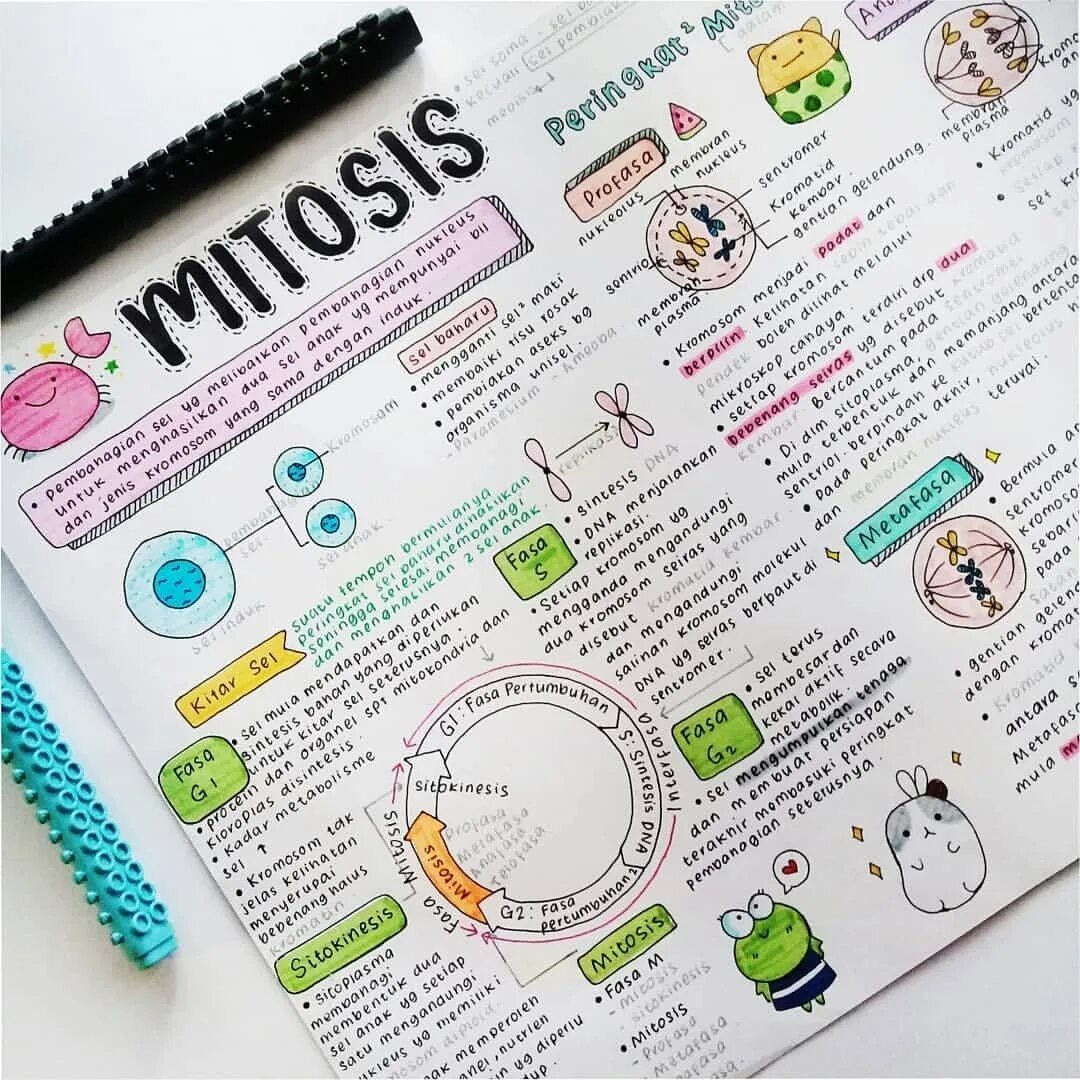 MITOSIS
• Pembahagian sel yg melibatkan pembahagian nukleus
untuk menghasilkan dua sel anak yg mempunyai bil
dan jenis kromosom yang sama dengan induk.
• sel soma
kecuali sel
meiosis
Sel baharu
• mengganti sel² mati
• membaiki tisu rosak
• pembiakan aseks bg
organisma unisel.
- Paramecium - Amoeba
kromosom
pembahagian
sel
sel anak
sel induk
suatu tempoh bermulanya
peringkat sel baharu dihasilkan
sehingga selesai membahagi
dan menghasilkan 2 sel anak.
Kitar Sel
Fasa
G1
• sel mula mendapatkan dan
sintesis bahan yang diperlukan
untuk kitar sel seterusnya.
• protein dan organel spt mitokondria dan
kloroplas disintesis.
• Kadar metabolisme
sel ↑
• Kromosom tak
jelas kelihatan
menyerupai
bebenang halus
kromatin
Sitokinesis
• sitoplasma
membahagi
membentuk dua
sel anak yg setiap
satu mengandungi
nukleus yg memiliki
kromosom diploid.
nak memperoleh
nel, nutrien
yg diperlu
G1: Fasa Pertumbuhan
S: Sintesis DNA
G2: Fasa
pertumbuhan2
Interfasa
sitokinesis
Mitosis
Profasa
Metafasa
Anafasa
Telofasa
Fasa Mitosis
replikasi
Fasa
S
• sintesis DNA
• DNA menjalankan
replikasi.
• Setiap kromosom yg
mengganda mengandungi
dua kromosom seiras yang
disebut kromatid kembar.
dan mengandungi
salinan kromosom molekul
DNA yg seiras berpaut di
sentromer.
Fasa
G2
• sel terus
membesar dan
kekal aktif secara
metabolik.
• sel mengumpulkan tenaga
dan membuat persiapan
terakhir membasuki peringkat
pembahagian seterusnya.
Mitosis
• Fasa M
- mitosis
- sitokinesis
• Mitosis
- Profasa
- Metafasa
Peringkat² Mito
dalam
Profasa
membran
nukleus
nukleolus
sentromer
Kromatid
kembar.
gentian gelendung.
sentriol
membran
plasma
• Kromosom menjadi padat dan
berpilin. Kelihatan
pendek boleh dilihat melalui
mikroskop cahaya.
• setiap kromosom terdiri drp dua
bebenang seiras yg disebut kromatid
kembar. Bercantum pada sentromer.
• Di dlm sitoplasma, gentian gelendung
mula terbentuk dan memanjang antara
sentriol. berpindah ke kutub sel bertenta
• Pada peringkat akhir, nukleolus
dan membran nukleus teruvai.
Metafasa
• Bermula
sentromer
Kromoso
sebari
pada
• gentian gelen
dengan kromat
• Kromatid
antara s
Metafas
mula m
An
Kromo
an
membran
plasma
• Kromatid yg
kromosom
setiap k
• Set kro